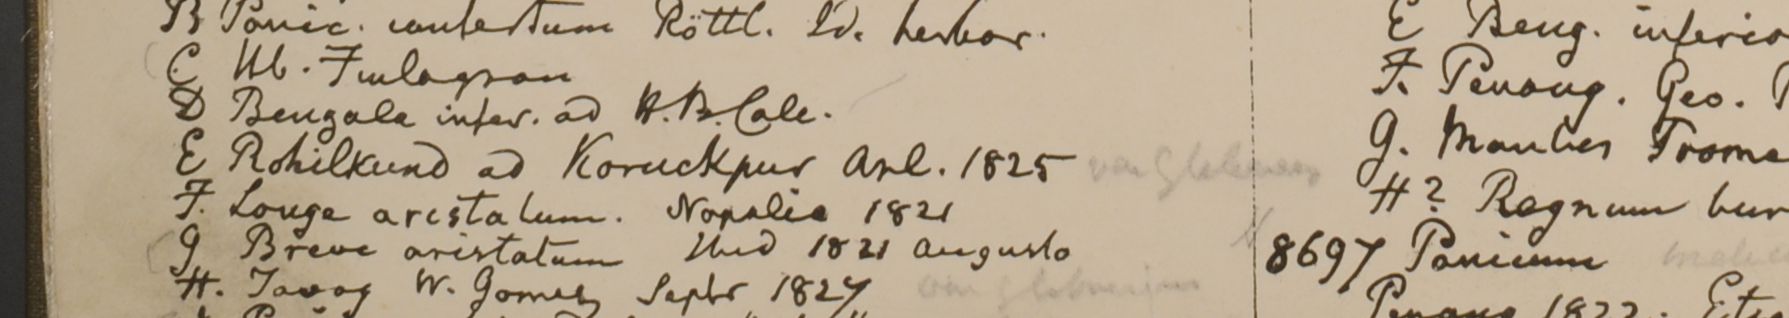 B Panic. confertum Röttl. Id. herbar.
C Hb. Finlayson
D Bengala infer. ad H.B. Calc.
E Rohilkund ad Koruckpur Apl. 1825
F. Longe aristatum. Napalia 1821
G Breve aristatum Ibid 1821 Augusto
H. Tavoy W. Gomez Septr 1827
E Beng. inferio
F. Penang. Geo. P
G. Montes Prome
H? Regnum bur
8697 Panicum
Penang 1822.